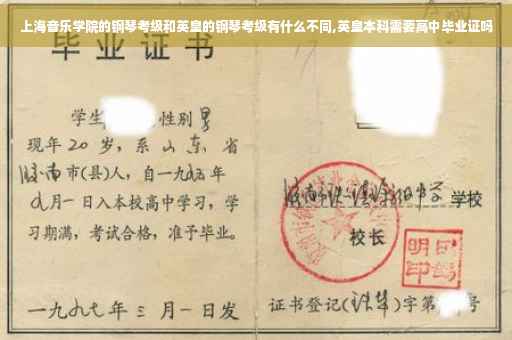 上海音乐学院的钢琴考级和英皇的钢琴考级有什么不同,英皇本科需要高中毕业证吗
毕业证书
学生 性别男
现年20岁，系山东省
济南市(县)人，自一九九五年
九月一日入本校高中学习，学
习期满，考试合格，准予毕业。
一九九七年三月一日发
学校
校长
证书登记( )字第 号